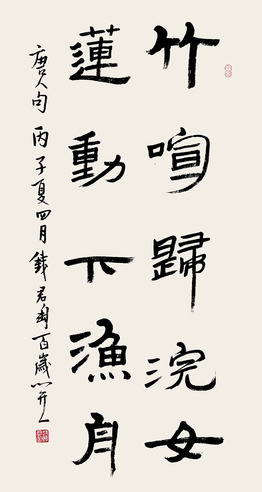 竹喧歸浣女
蓮動下漁舟
唐人句 丙子夏四月 錢君匋百歲